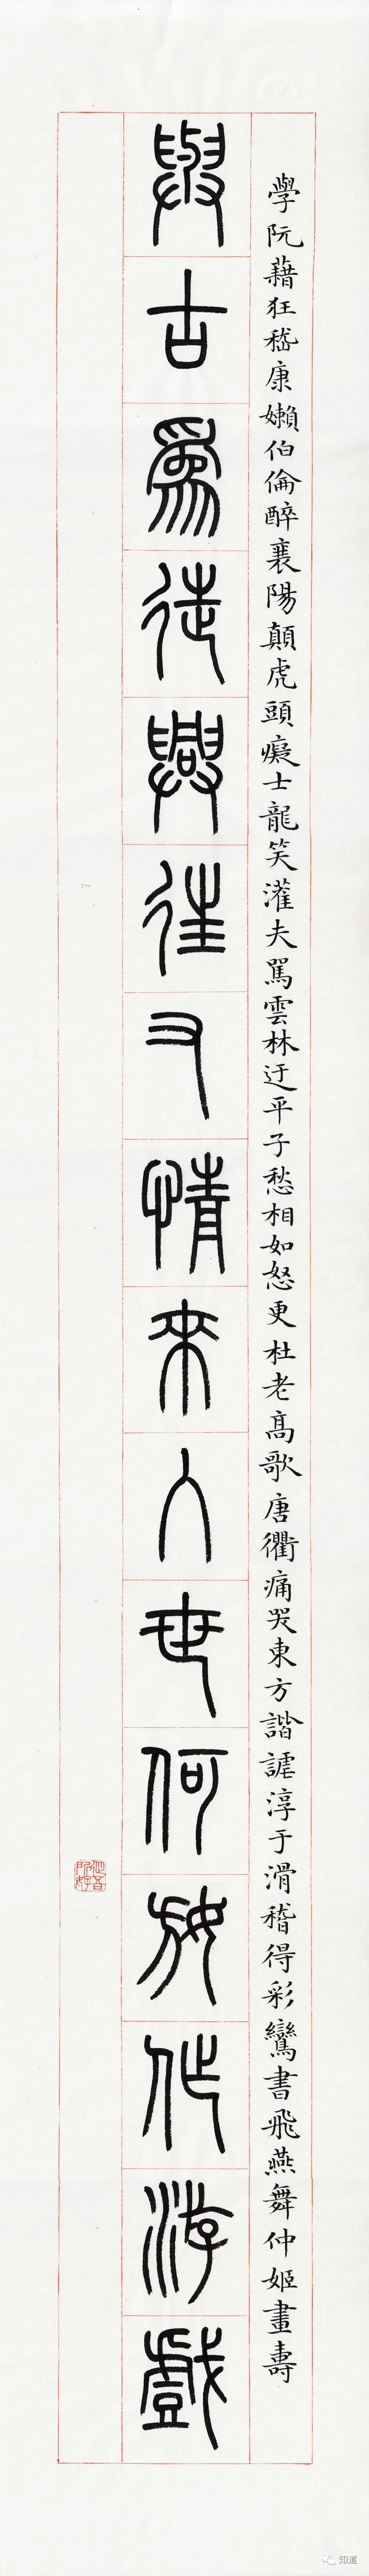 學阮藉狂嵇康嬾伯倫醉襄陽顛虎頭癡士龍笑灌夫罵雲林迂平子愁相如怒更杜老高歌唐衢痛哭東方諧謔淳于滑稽得彩鸞書飛燕舞仲姬畫壽
與古爲徒興往又情來人世何妨作游戲
知道